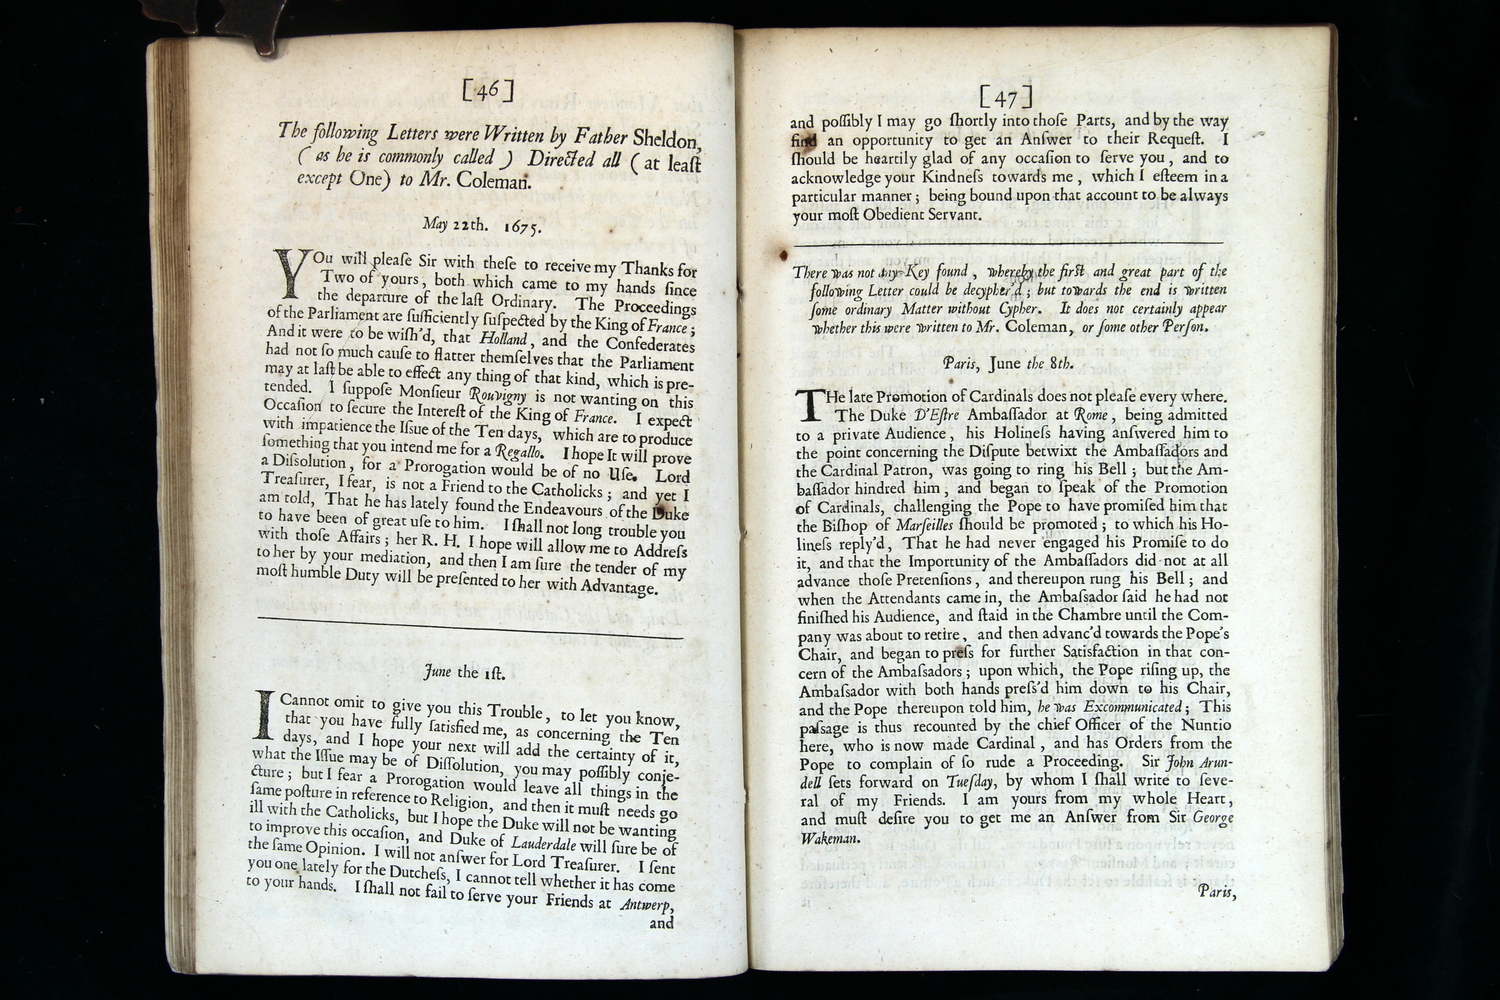 [46]
The following Letters were Written by Father Sheldon,
( as he is commonly called ) Directed all ( at leaſt
except One) to Mr. Coleman.
May 22th. 1675.
YOu will pleaſe Sir with theſe to receive my Thanks for
Two of yours, both which came to my hands ſince
the departure of the laſt Ordinary. The Proceedings
of the Parliament are ſufficiently ſuſpected by the King of France;
And it were to be wiſh'd, that Holland, and the Confederates
had not ſo much cauſe to flatter themſelves that the Parliament
may at laſt be able to effect any thing of that kind, which is pre-
tended. I ſuppoſe Monſieur Rouvigny is not wanting on this
Occaſion to ſecure the Intereſt of the King of France. I expect
with impatience the Iſſue of the Ten days, which are to produce
ſomething that you intend me for a Regallo. I hope It will prove
a Diſſolution, for a Prorogation would be of no Uſe. Lord
Treaſurer, I fear, is not a Friend to the Catholicks; and yet I
am told, That he has lately found the Endeavours of the Duke
to have been of great uſe to him. I ſhall not long trouble you
with thoſe Affairs; her R. H. I hope will allow me to Addreſs
to her by your mediation, and then I am ſure the tender of my
moſt humble Duty will be preſented to her with Advantage.
June the 1ſt.
I Cannot omit to give you this Trouble, to let you know,
that you have fully ſatisfied me, as concerning the Ten
days, and I hope your next will add the certainty of it,
what the Iſſue may be of Diſſolution, you may poſſibly conje-
cture; but I fear a Prorogation would leave all things in the
ſame poſture in reference to Religion, and then it muſt needs go
ill with the Catholicks, but I hope the Duke will not be wanting
to improve this occaſion, and Duke of Lauderdale will ſure be of
the ſame Opinion. I will not anſwer for Lord Treaſurer. I ſent
you one lately for the Dutcheſs, I cannot tell whether it has come
to your hands. I ſhall not fail to ſerve your Friends at Antwerp,
and
[47]
and poſſibly I may go ſhortly into thoſe Parts, and by the way
find an opportunity to get an Anſwer to their Requeſt. I
ſhould be heartily glad of any occaſion to ſerve you, and to
acknowledge your Kindneſs towards me, which I eſteem in a
particular manner; being bound upon that account to be always
your moſt Obedient Servant.
There was not any Key found, whereby the firſt and great part of the
following Letter could be decypher'd; but towards the end is written
ſome ordinary Matter without Cypher. It does not certainly appear
whether this were written to Mr. Coleman, or ſome other Perſon.
Paris, June the 8th.
THe late Promotion of Cardinals does not pleaſe every where.
The Duke D'Eſtre Ambaſſador at Rome, being admitted
to a private Audience, his Holineſs having anſwered him to
the point concerning the Diſpute betwixt the Ambaſſadors and
the Cardinal Patron, was going to ring his Bell; but the Am-
baſſador hindred him, and began to ſpeak of the Promotion
of Cardinals, challenging the Pope to have promiſed him that
the Biſhop of Marſeilles ſhould be promoted; to which his Ho-
lineſs reply'd, That he had never engaged his Promiſe to do
it, and that the Importunity of the Ambaſſadors did not at all
advance thoſe Pretenſions, and thereupon rung his Bell; and
when the Attendants came in, the Ambaſsador ſaid he had not
finiſhed his Audience, and ſtaid in the Chambre until the Com-
pany was about to retire, and then advanc'd towards the Pope's
Chair, and began to preſs for further Satisfaction in that con-
cern of the Ambaſsadors; upon which, the Pope riſing up, the
Ambaſsador with both hands preſs'd him down to his Chair,
and the Pope thereupon told him, he was Excommunicated; This
paſsage is thus recounted by the chief Officer of the Nuntio
here, who is now made Cardinal, and has Orders from the
Pope to complain of ſo rude a Proceeding. Sir John Arun-
dell ſets forward on Tueſday, by whom I ſhall write to ſeve-
ral of my Friends. I am yours from my whole Heart,
and muſt deſire you to get me an Anſwer from Sir George
Wakeman.
Paris,